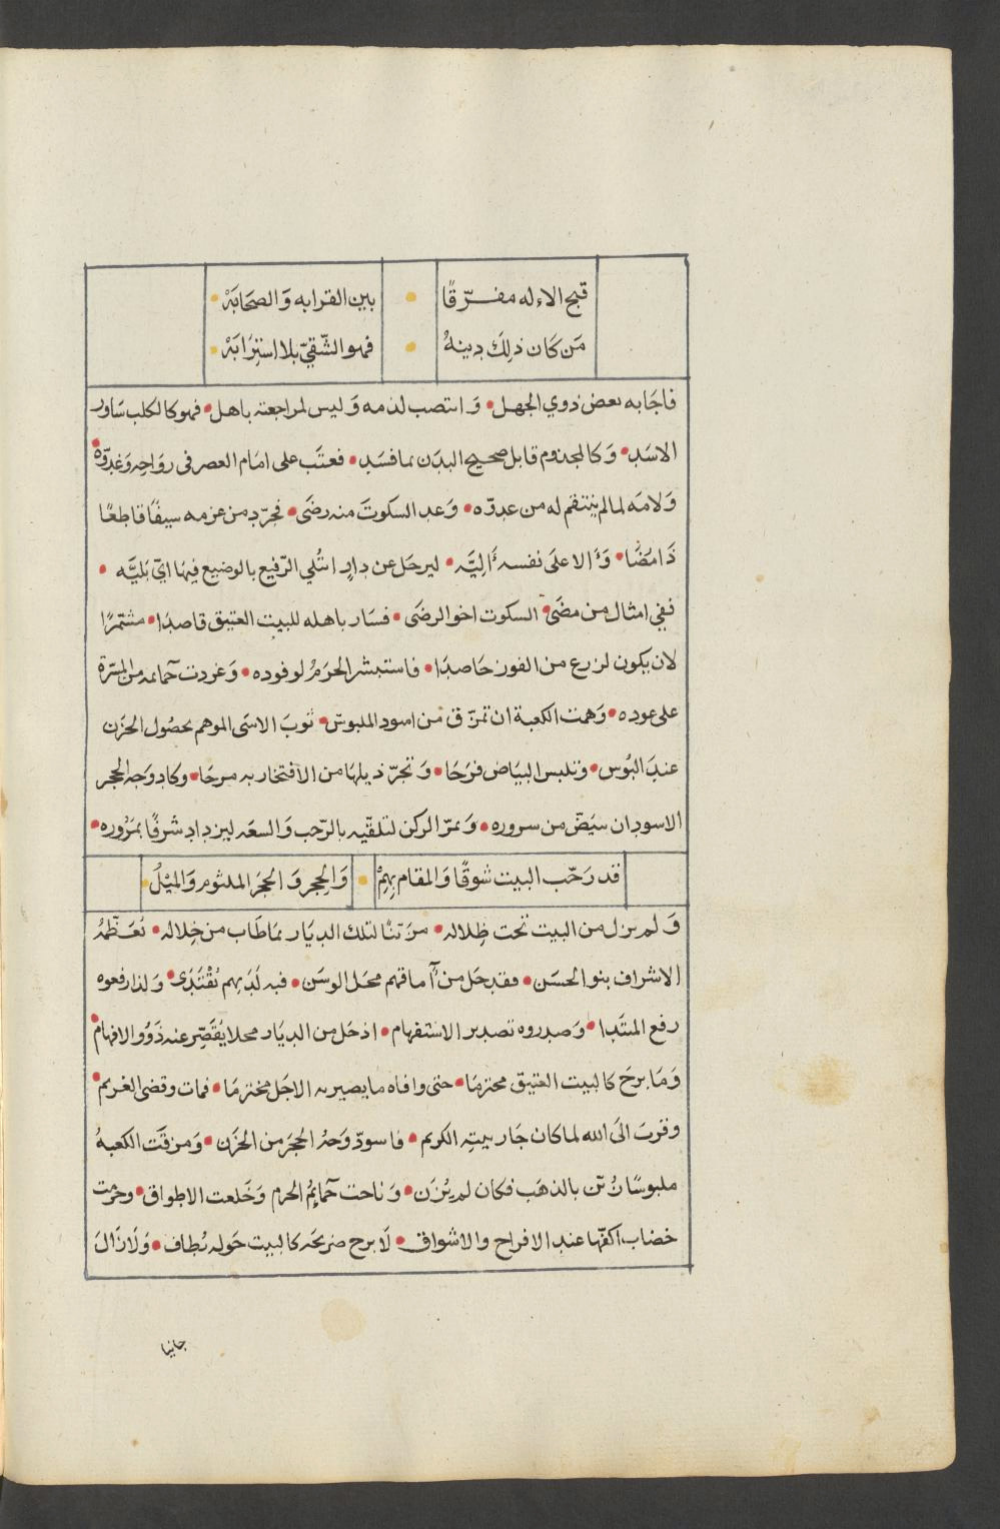 قبح الاءله مفرّقًا • بين القرابه وَالصحَابَهْ •
مَن كَان ذلِكَ دينهُ • فهو الشّقيّ بلا استِرَابَهْ •
فاجَابه بعض ذوي الجهل • وَانتصب لذمه وَليس لمراجعته باهل • فهو كالكلب سَاور
الاسَد • وَكالمجذوم قابل صحيح البدَن بمافسَد • فعتَب على امَام العصر فى روَاحِه وَغدوّه •
وَلامَه لما لم ينتقم له من عدوّه • وَعد السكوتَ منه رضَى • فجرّد من عزمه سيفًا قاطعًا
ذَامضًا • وَألا علَى نفسه ألِيَّه • ليرحَل عن دارٍ ابتُلي الرّفيع بالوضيع فِيهَا ايّ بَليَّه •
ففي امثال من مضَى • السكوت اخو الرضَى • فسَار باهله للبيت العتيق قاصدًا • مشتمرًا
لان يكون لزرع من الفوز حَاصدًا • فاستبشر الحرَمُ لوفوده • وَغردت حمَامه من المسَرّة
على عوده • وَهمت الكعبة ان تمزّق مَن اسود الملبوسْ • ثوبَ الاسَى الموهم بحصُول الحزَن
عندَ البُوس • وتلبس البيَاض فرَحًا • وَتجرّ ذيلهَا من الافتخار به مرحًا • وكاد وَجه الحجر
الاسود ان يبَيضّ من سروره • وَيمرّ الركن لتلقّيه بالرّحب وَالسعَه ليزداد شرفًا بمرُوره •
قد رَحّب البيت شوقًا وَالمقام بِهِمْ • وَالحِجر وَالحجَر الملثوم وَالميْلُ •
وَلم يزل من البيت تحت ظِلاله • مرتئَا لتلك الديَار بمَا طَاب من خِلاله • تُعَظّمهُ
الاشراف بنو الحسَن • فقد حَل من آماقهم محَل الوسَن • فبه لَدَيهم يُقْتَدَى • وَلذا رفعوه
رفع المبتَدا • وَصدروه تصدير الاستفهام • اذ حَل من الديَار محلا يُقَصّر عنه ذَوُو الافهام •
وَمَا برحَ كالبيت العتيق محترمَا • حتى وافاه ما يصير به الاجَل مخترمَا • فمات وقضى الغريم •
وقربَ الَى الله لما كان جَار بيتِه الكريم • فاسودّ وَجهُ الحجَر من الحزَن • وَمزقَت الكعبهُ
ملبوسًا زُيّن بالذهَب فكان لم يُزَن • وَناحت حمَائِمُ الحرم وَخَلعت الاطواق • وحرمت
خضاب اكفّها عند الافراح والاشواق • لَا برح ضريحَه كالبيت حَوله يُطاف • وَلَازَالَ
جانيا